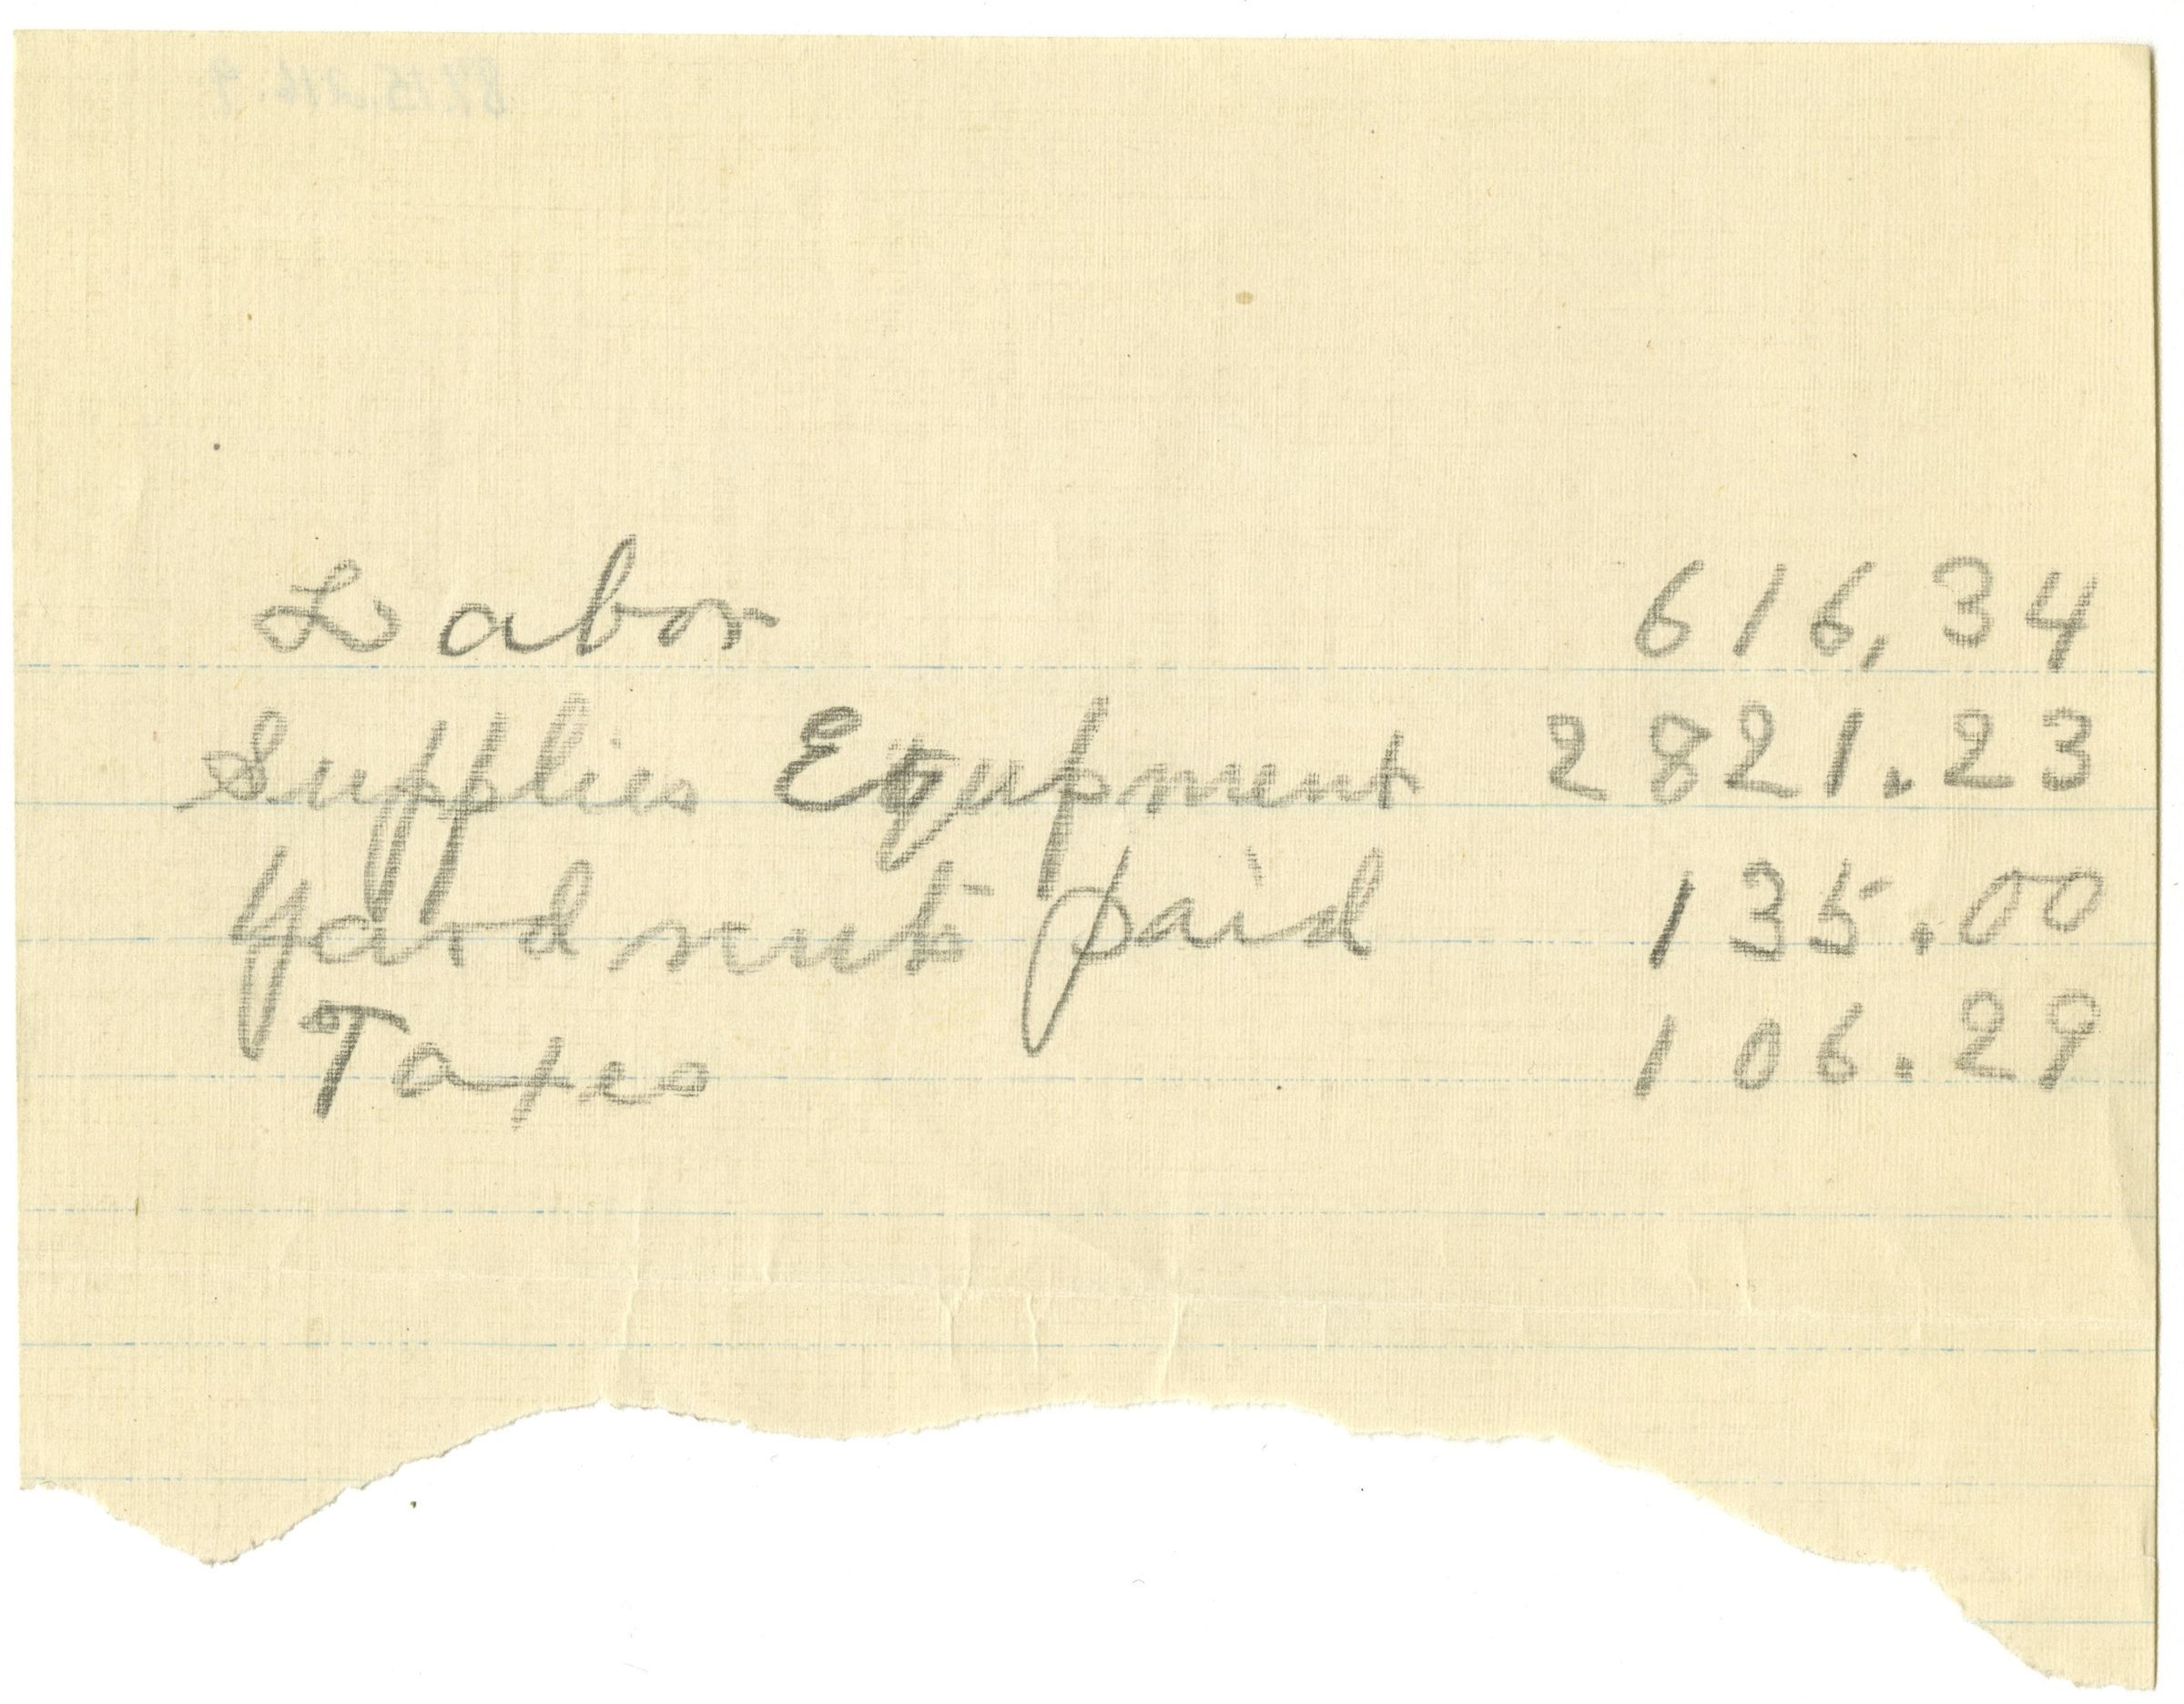 Labor 616,34
Supplies Equpment 2821.23
Yard rent paid 135.00
Taxes 106.29